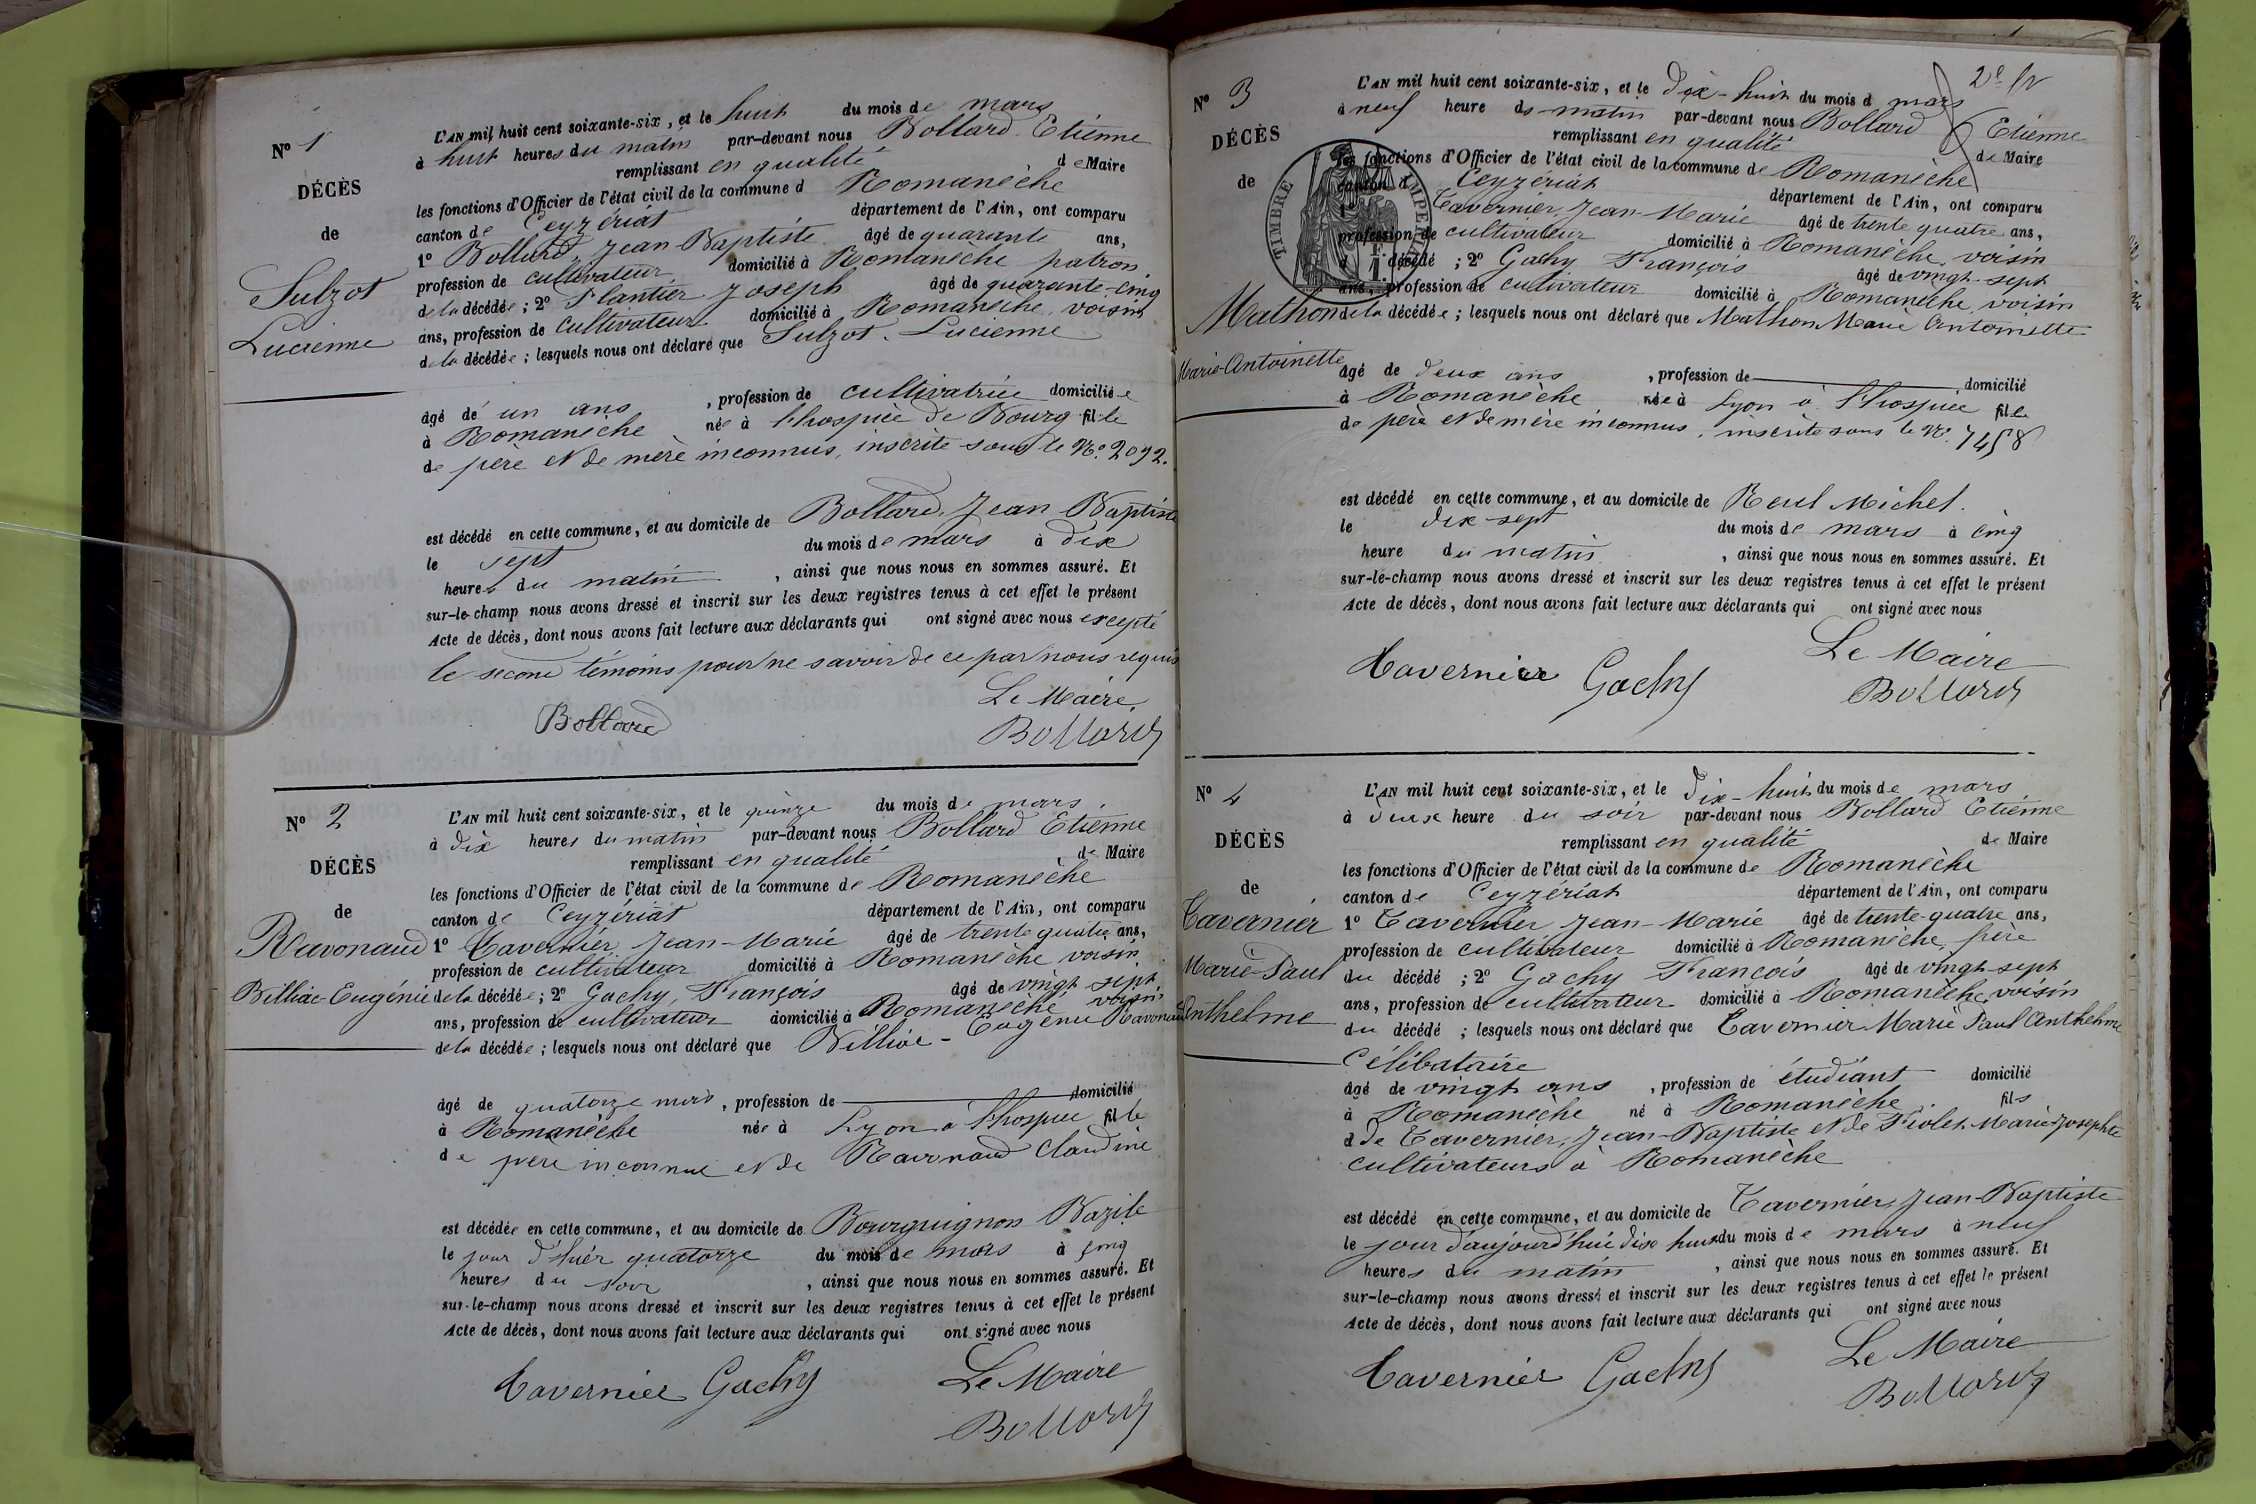 N° 1
DÉCÈS
de
Sulzot
Lucienne
L'AN mil huit cent soixante-six, et le huit du mois de mars
à huit heures du matin par-devant nous Bollard Etienne
remplissant en qualité de Maire
les fonctions d'Officier de l'état civil de la commune d Romanèche
canton de Ceyzériat département de l'Ain, ont comparu
1° Bollard, Jean Baptiste âgé de quarante ans,
profession de cultivateur domicilié à Romanèche patron
de la décédée; 2° Plantier Joseph âgé de quarante-cinq
ans, profession de cultivateur domicilié à Romanèche, voisin
de la décédée; lesquels nous ont déclaré que Sulzot. Lucienne
âgé de un ans, profession de cultivatrice domiciliée
à Romanèche née à l'hospice de Bourg fille
de père et de mère inconnus, inscrite sous le N° 2092.
est décédé en cette commune, et au domicile de Bollard, Jean Baptiste
le sept du mois de mars à dix
heures du matin, ainsi que nous nous en sommes assuré. Et
sur-le-champ nous avons dressé et inscrit sur les deux registres tenus à cet effet le présent
Acte de décès, dont nous avons fait lecture aux déclarants qui ont signé avec nous excepté
le second témoins pour ne savoir de ce par nous requis
Le Maire,
Bollard Bollard
N° 2
DÉCÈS
de
Ravonaud
Billiac-Eugénie
L'AN mil huit cent soixante-six, et le quinze du mois de mars
à dix heures du matin par-devant nous Bollard Etienne
remplissant en qualité de Maire
les fonctions d'Officier de l'état civil de la commune de Romanèche
canton de Ceyzériat département de l'Ain, ont comparu
1° Tavernier Jean-Marie âgé de trente quatre ans,
profession de cultivateur domicilié à Romanèche voisin
de la décédée; 2° Gachy, François âgé de vingt-sept
ans, profession de cultivateur domicilié à Romanèche voisin
de la décédée; lesquels nous ont déclaré que Billiac-Eugénie Ravonaud
âgé de quatorze mois, profession de domicilié
à Romanèche née à Lyon à l'hospice fille
de père inconnue et de Ravonaud Claudine
est décédée en cette commune, et au domicile de Bourguignon Bazile
le jour d'hiér quatorze du mois de mars à cinq
heures du soir, ainsi que nous nous en sommes assuré. Et
sur-le-champ nous avons dressé et inscrit sur les deux registres tenus à cet effet le présent
Acte de décès, dont nous avons fait lecture aux déclarants qui ont signé avec nous
Tavernier Gachy Le Maire
Bollard
2e
N° 3
DÉCÈS
de
Mathon
Marie-Antoinette
TIMBRE IMPERIAL
L'AN mil huit cent soixante-six, et le dix-huit du mois d mars
à neuf heure ds matin par-devant nous Bollard Etienne
remplissant en qualité de Maire
les fonctions d'Officier de l'état civil de la commune de Romanèche
canton d Ceyzériat département de l'Ain, ont comparu
1° Tavernier, Jean-Marie âgé de trente quatre ans,
profession de cultivateur domicilié à Romanèche, voisin
d décédé; 2° Gachy François âgé de vingt-sept
ans, profession de cultivateur domicilié à Romanèche, voisin
de la décédée; lesquels nous ont déclaré que Mathon Marie Antoinette
âgé de deux ans, profession de domicilié
à Romanèche née à Lyon à l'hospice fille
de père et de mère inconnus, inscrite sous le N° 7458
est décédé en cette commune, et au domicile de Reul Michel.
le dix-sept du mois de mars à cinq
heure du matin, ainsi que nous nous en sommes assuré. Et
sur-le-champ nous avons dressé et inscrit sur les deux registres tenus à cet effet le présent
Acte de décès, dont nous avons fait lecture aux déclarants qui ont signé avec nous
Tavernier Gachy Le Maire
Bollard
N° 4
DÉCÈS
de
Tavernier
Marie-Paul
Anthelme
L'AN mil huit cent soixante-six, et le dix-huit du mois de mars
à deux heure du soir par-devant nous Bollard Etienne
remplissant en qualité de Maire
les fonctions d'Officier de l'état civil de la commune de Romanèche
canton de Ceyzériat département de l'Ain, ont comparu
1° Tavernier Jean-Marie âgé de trente-quatre ans,
profession de cultivateur domicilié à Romanèche, père
du décédé; 2° Gachy François âgé de vingt-sept
ans, profession de cultivateur domicilié à Romanèche, voisin
du décédé; lesquels nous ont déclaré que Tavernier Marie Paul Anthelme
Célibataire
âgé de vingt ans, profession de étudiant domicilié
à Romanèche né à Romanèche fils
d de Tavernier, Jean-Baptiste et de Fiolet Marie-Josephte
cultivateurs à Romanèche
est décédé en cette commune, et au domicile de Tavernier, Jean-Baptiste
le jour d'aujourd'hui dix huit du mois de mars à neuf
heures du matin, ainsi que nous nous en sommes assuré. Et
sur-le-champ nous avons dressé et inscrit sur les deux registres tenus à cet effet le présent
Acte de décès, dont nous avons fait lecture aux déclarants qui ont signé avec nous
Tavernier Gachy Le Maire
Bollard